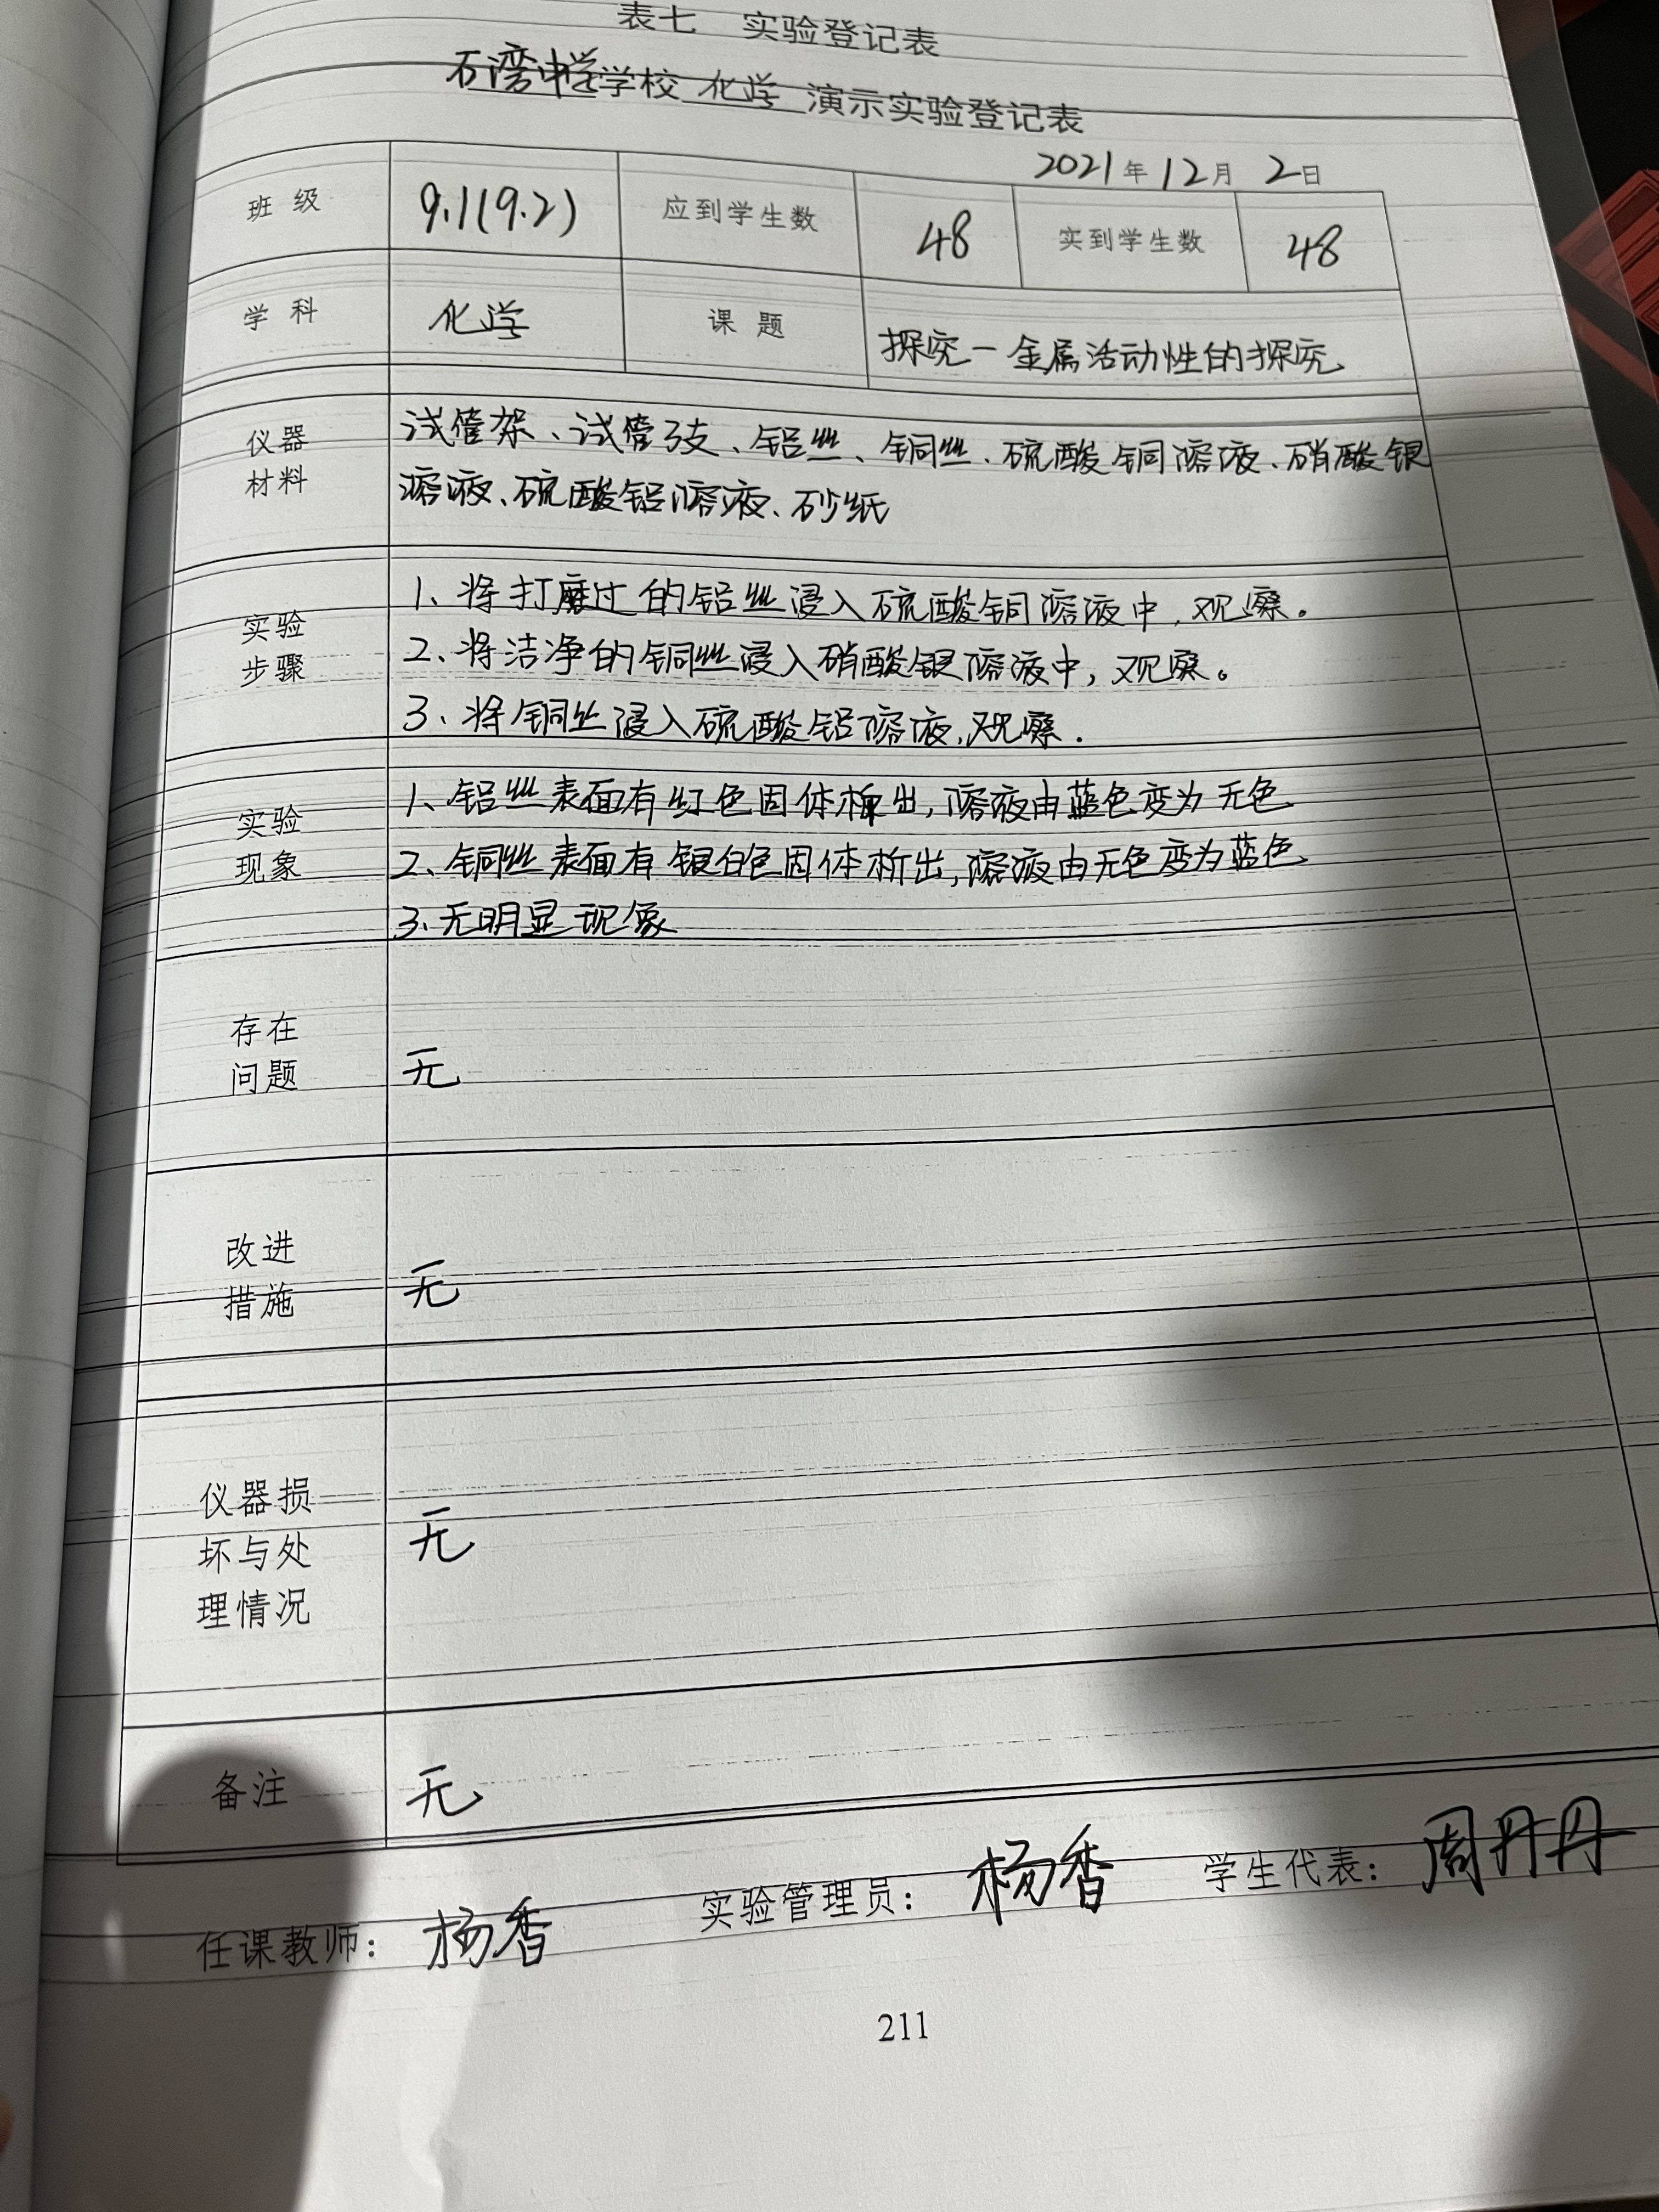 表七 实验登记表
石湾中学学校 化学 演示实验登记表
2021年12月2日
班级 9.1(9.2) 应到学生数 48 实到学生数 48
学科 化学 课题 探究一金属活动性的探究
仪器材料
试管架、试管3支、铝丝、铜丝、硫酸铜溶液、硝酸银
溶液、硫酸铝溶液、砂纸
实验步骤
1、将打磨过的铝丝浸入硫酸铜溶液中,观察。
2、将洁净的铜丝浸入硝酸银溶液中,观察。
3、将铜丝浸入硫酸铝溶液,观察.
实验现象
1、铝丝表面有红色固体析出,溶液由蓝色变为无色
2、铜丝表面有银白色固体析出,溶液由无色变为蓝色
3、无明显现象
存在
问题 无
改进
措施 无
仪器损
坏与处 无
理情况
备注 无
任课教师: 杨香 实验管理员: 杨香 学生代表: 周丹丹
211